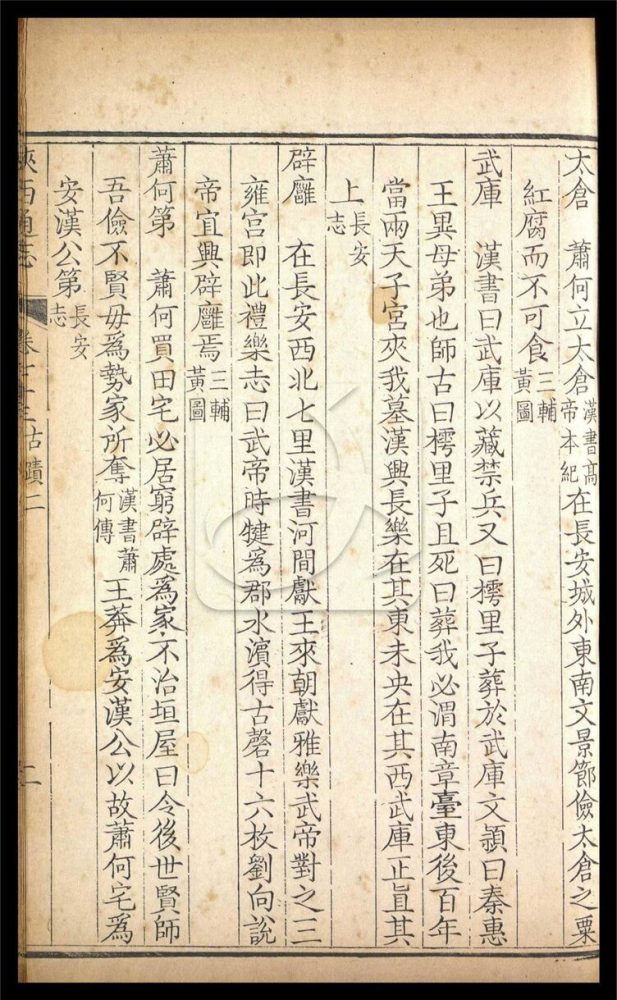 太倉　蕭何立太倉漢書高帝本紀在長安城外東南文景節儉太倉之粟
紅腐而不可食三輔黃圖
武庫　漢書曰武庫以藏禁兵又曰樗里子葬於武庫文潁曰秦惠
王異母弟也師古曰樗里子且死曰葬我必渭南章臺東後百年
當兩天子宮夾我墓漢興長樂在其東未央在其西武庫正直其
上長安志
辟雝　在長安西北七里漢書河間獻王來朝獻雅樂武帝對之三
雍宮即此禮樂志曰武帝時犍爲郡水濱得古磬十六枚劉向說
帝宜興辟雝焉三輔黃圖
蕭何第　蕭何買田宅必居窮辟處爲家不治垣屋曰令後世賢師
吾儉不賢毋爲勢家所奪漢書蕭何傳王莽爲安漢公以故蕭何宅爲
安漢公第長安志
陝西通志　卷七十三古蹟二　二